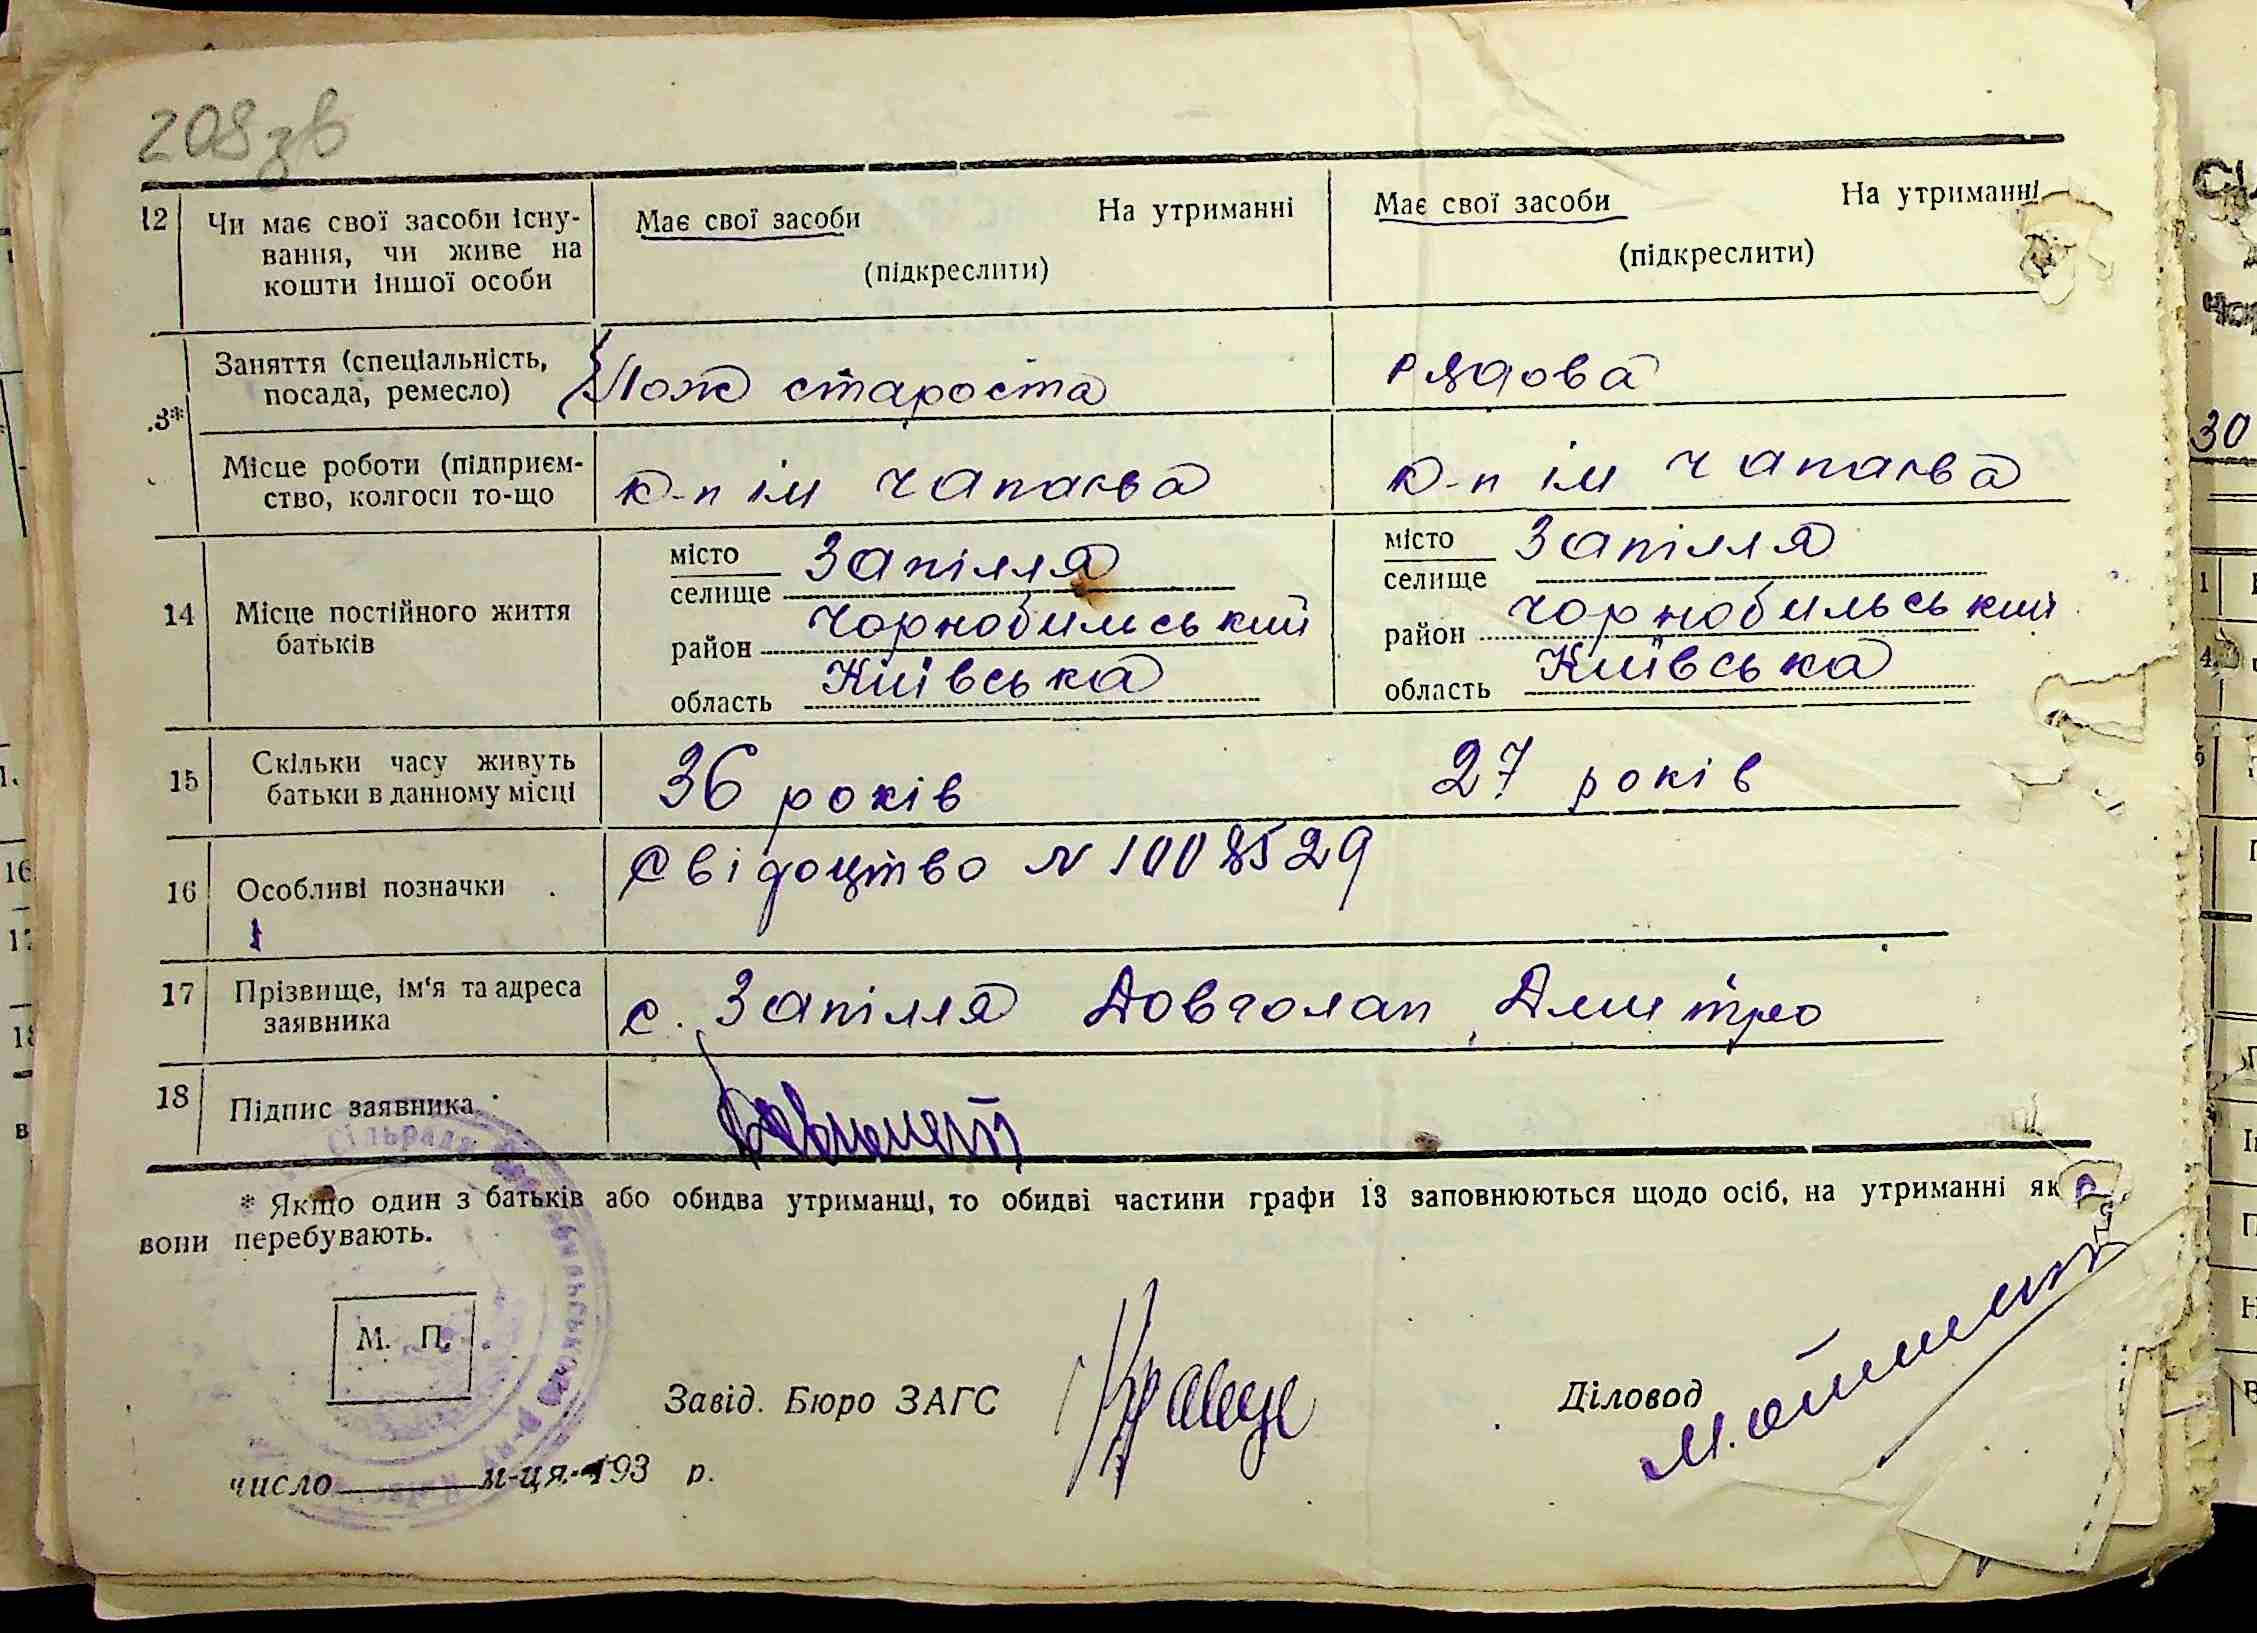 208зв
12 Чи має свої засоби існу-
вання, чи живе на
кошти іншої особи
Має свої засоби На утриманні
(підкреслити)
Має свої засоби На утриманні
(підкреслити)
.3*
Заняття (спеціальність,
посада, ремесло)
Пож староста
рядова
Місце роботи (підприєм-
ство, колгосп то-що
к-п ім Чапаєва
к-п ім Чапаєва
14 Місце постійного життя
батьків
місто
селище Запілля
район Чорнобильський
область Київська
місто
селище Запілля
район Чорнобильський
область Київська
15 Скільки часу живуть
батьки в данному місці
36 років
27 років
16 Особливі позначки
Свідоцтво N 1008529
17 Прізвище, ім'я та адреса
заявника
с. Запілля Довголап Дмитро
18 Підпис заявника
* Якщо один з батьків або обидва утриманці, то обидві частини графи 13 заповнюються щодо осіб, на утриманні як
вони перебувають.
М. П.
Завід. Бюро ЗАГС
Діловод
число м-ця 193 р.